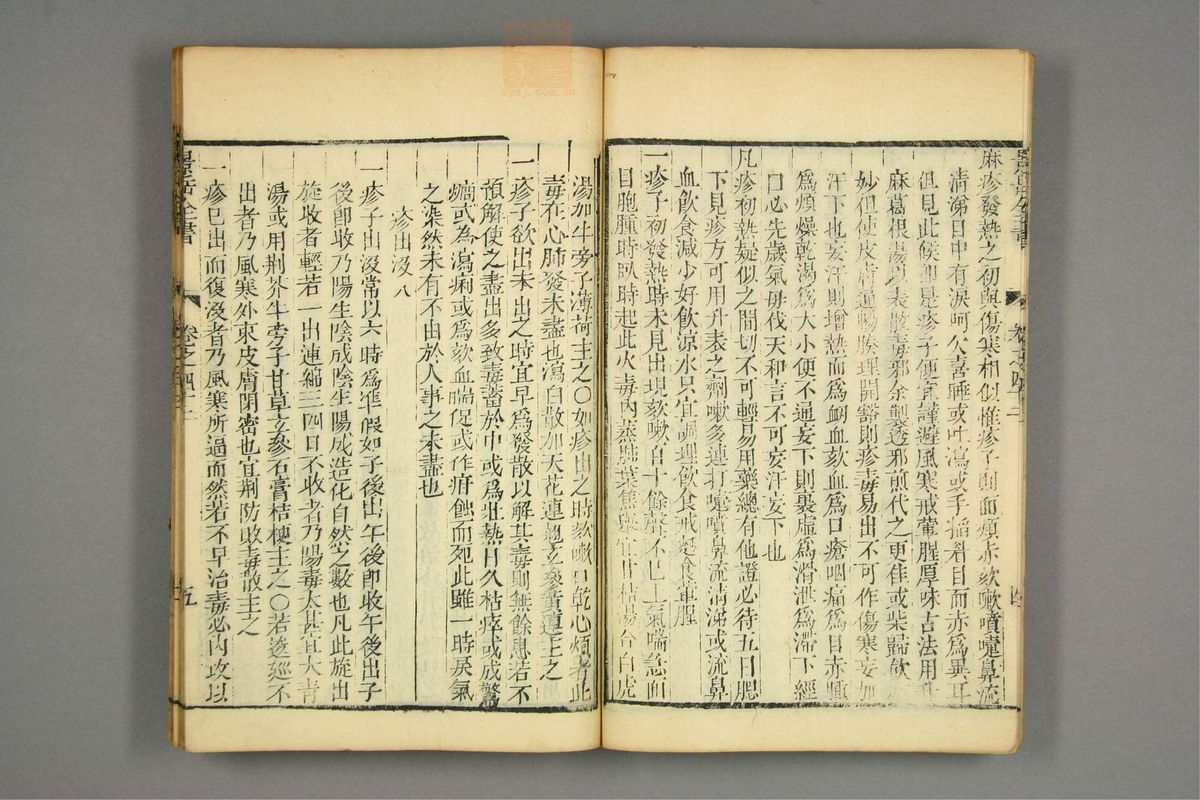 麻疹發熱之初與傷寒相似惟疹子則面頰赤欬嗽噴嚏鼻流
清涕目中有淚呵欠喜睡或吐瀉或手掐眉目而赤爲異耳
但見此候即是疹子便宜謹避風寒戒葷腥厚味古法用升
麻葛根湯以表散毒邪余製透邪煎代之更佳或柴歸飲
妙但使皮膚通暢腠理開豁則疹毒易出不可作傷寒妄加
汗下也妄汗則增熱而爲衂血欬血爲口瘡咽痛爲目赤腫
爲煩燥乾渴爲大小便不通妄下則裏虛爲滑泄爲滯下經
曰必先歲氣毋伐天和言不可妄汗妄下也
凡疹初熱疑似之間切不可輕易用藥總有他證必待五日腮
下見疹方可用升表之劑嗽多連打嚏噴鼻流清涕或流鼻
血飲食減少好飲涼水只宜調理飲食戒煎食葷腥
一疹子初發熱時未見出現欬嗽百十餘聲不已上氣喘急面
目胞腫時臥時起此火毒內蒸肺葉焦舉宜甘桔湯合白虎
湯加牛旁子薄荷主之〇如疹出之時欬嗽口乾心煩者此
毒在心肺發未盡也瀉白散加天花連翹玄參黃連主之
一疹子欲出未出之時宜早爲發散以解其毒則無餘患若不
預解使之盡出多致毒蓄於中或爲壯熱日久枯瘁或成驚
癇或為瀉痢或爲欬血喘促或作疳蝕而死此雖一時戾氣
之染然未有不由於人事之未盡也
疹出沒 八
一疹子出沒常以六時爲準假如子後出午後即收午後出子
後即收乃陽生陰成陰生陽成造化自然之數也凡此旋出
旋收者輕若一出連綿三四日不收者乃陽毒太甚宜大青
湯或用荆芥牛旁子甘草玄參石膏桔梗主之〇若逡廵不
出者乃風寒外束皮膚閉密也宜荆防敗毒散主之
一疹巳出而復沒者乃風寒所逼而然若不早治毒必內攻以
景岳全書
卷之四十三